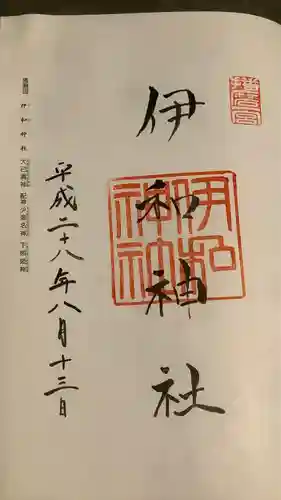 伊和神社
伊和神社
平成二十八年八月十三日
伊和神社 大己貴神 配神 少彦名神 下照姫神